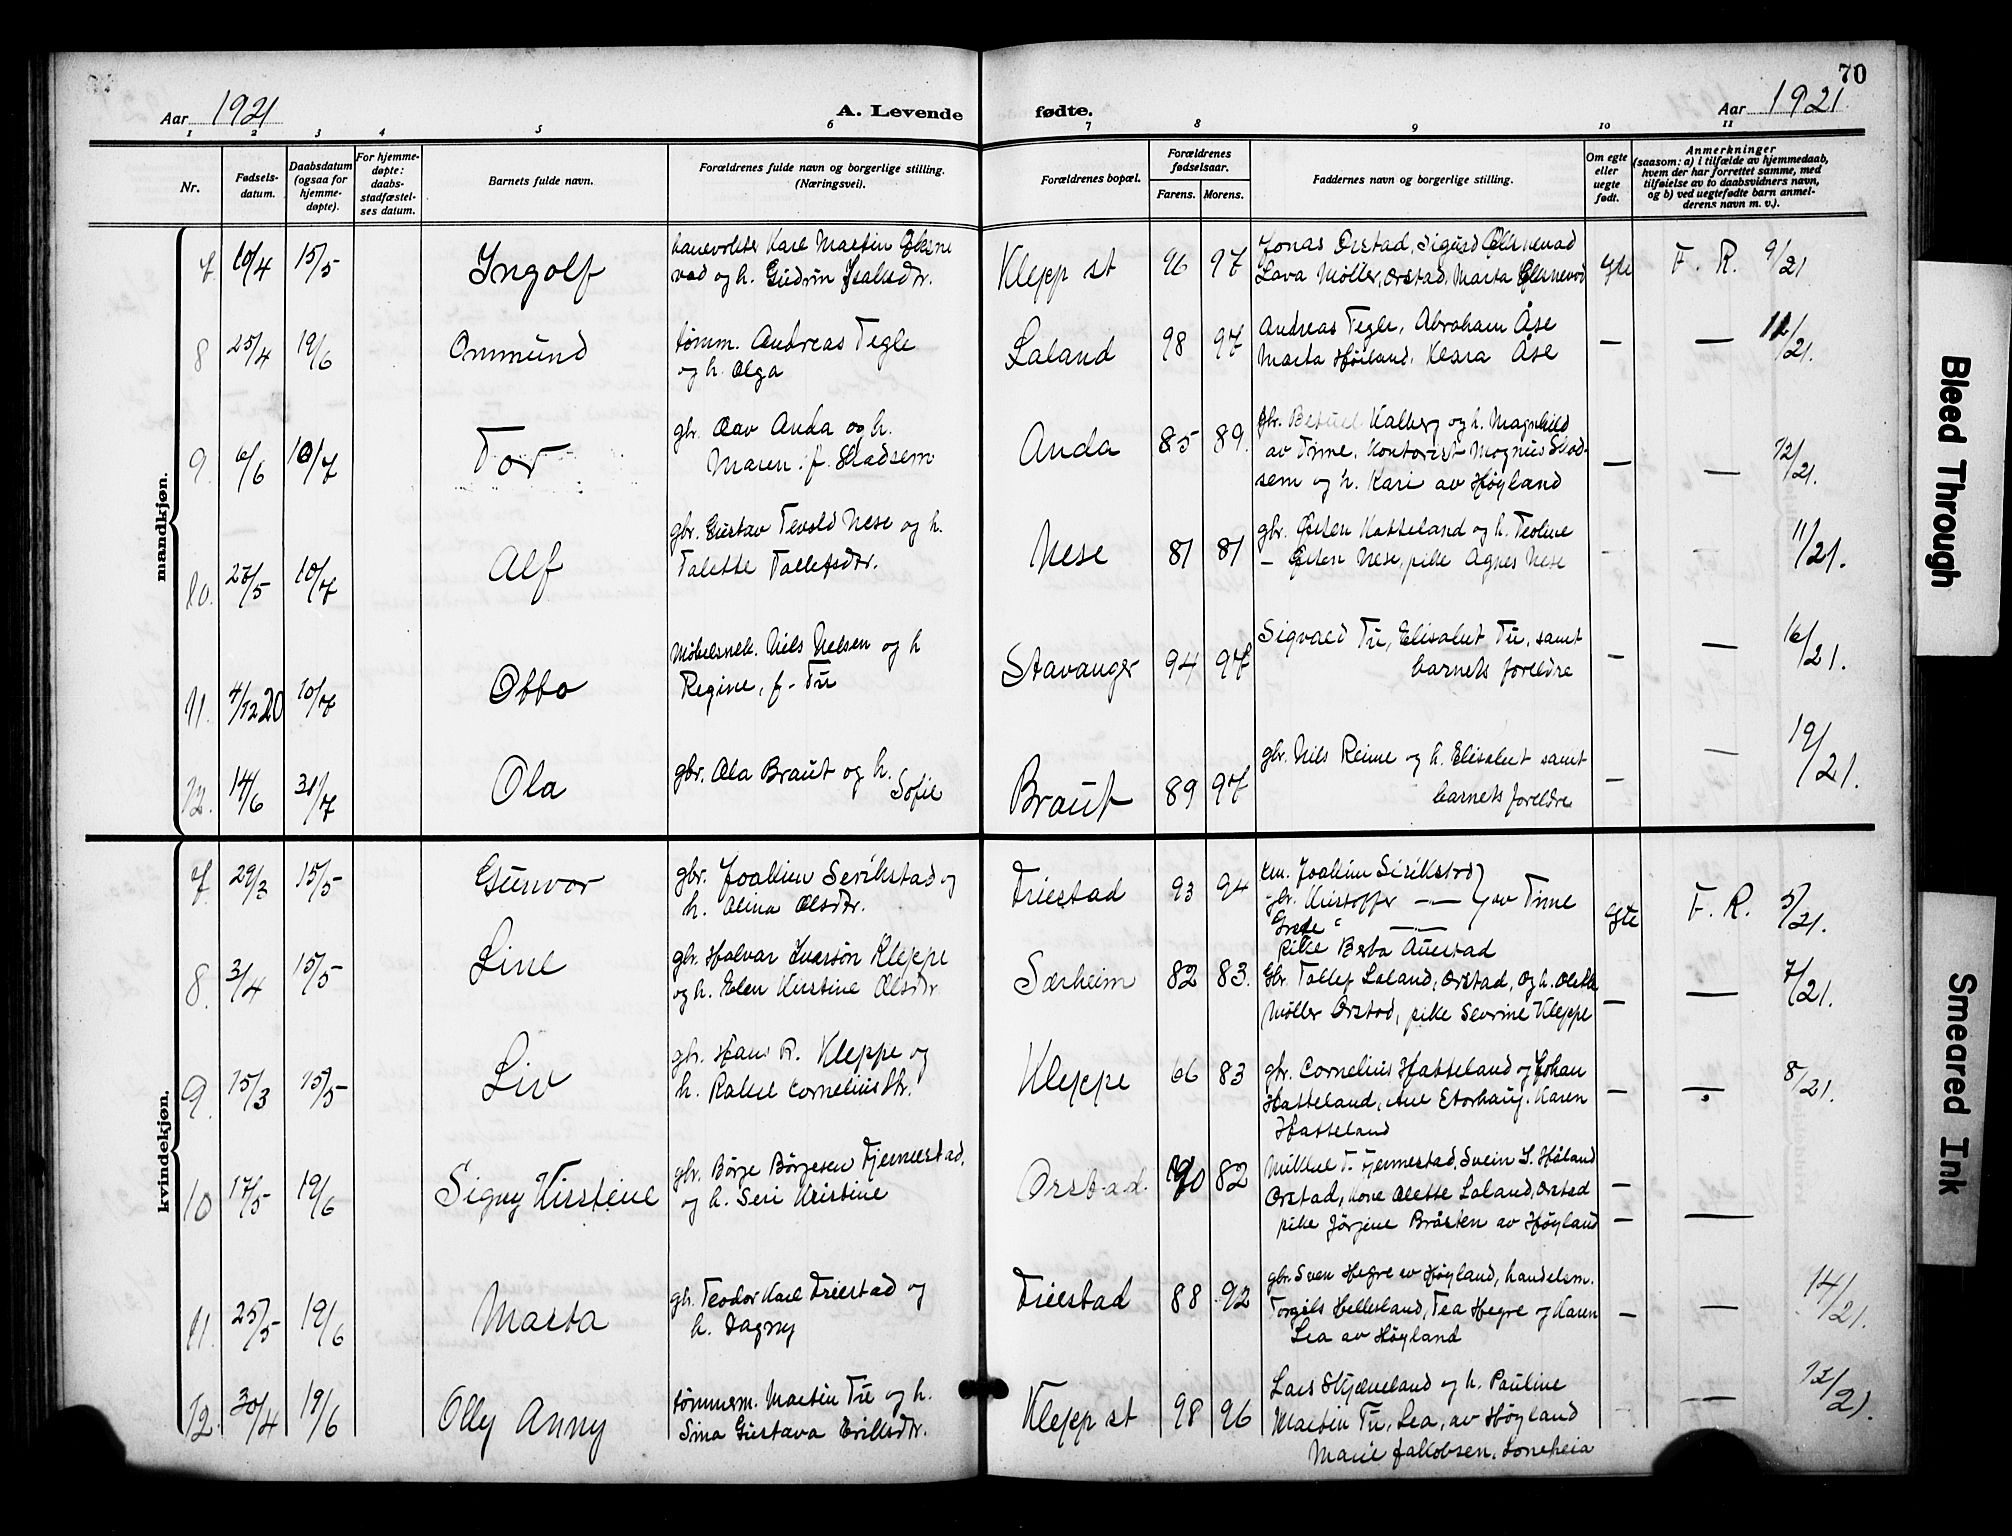 70
Aar 1921
A. Levende
fødte.
Aar 1921
1 2 3 4 5 6 7 8 9 10 11
Nr.
Fødsels-
datum.
Daabsdatum
(ogsaa for
hjemme-
døpte).
For hjemme-
døpte:
daabs-
stadfæstel-
ses datum.
Barnets fulde navn.
Forældrenes fulde navn og borgerlige stilling.
(Næringsvei).
Forældrenes bopæl.
Forældrenes
fødselsaar.
Farens. Morens.
Faddernes navn og borgerlige stilling.
Om egte
eller
uegte
født.
Anmerkninger
(saasom: a) i tilfælde av hjemmedaab,
hvem der har forrettet samme, med
tilføielse av to daabsvidners navn,
og b) ved uegtefødte barn anmel-
derens navn m. v.).
mandkjøn.
7 10/4 15/5
Ingolf
Karl Martin
og h. Gudrun
Klepp st
96 97
Jonas Orstad, Sigurd
Møller, Orstad, Marta
egte
F. R. 9/21
8 25/4 19/6
Ommund
tømm. Andreas Tegle
og h. Olga
Laland
98 97
Andreas Tegle, Abraham Åse
Marta Høiland, Klara Åse
— —
9. 6/6 10/7
Tor
gbr. Oav Anda og h.
Maren f. Skadsem
Anda
85 89.
gbr. Kalberg og h. Magnhild
av Time, Kontorist Magnus Skad-
sem og h. Kari av Høyland
— — 12/21.
10. 27/5 10/7
Alf
gbr. Gustav Tevold Nese og h.
Talette Tollefsdtr.
Nese
81 81
gbr. Østen Hatteland og h. Teoline
— Østen Nese, pike Agnes Nese
— — 11/21.
11. 4/12 20 10/7
Otto
Møbelsnek. Nils Nelsen og h
Regine, f. Tu
Stavanger
94 97
Sigvald Tu, Elisabet Tu, samt
barnets foreldre
— — 16/21.
12. 14/6 31/7
Ola
gbr. Ola Braut og h.
Sofie
Braut
89 97
gbr. Nils Reime og h. Elisabet samt
barnets foreldre
— — 19/21.
kvindekjøn.
7 29/3 15/5
Gunvor
gbr. Joakim Serikstad og
h. Alma Olsdtr.
Friestad
93 94
em. Joakim Serikstad
gbr. Kristoffer — — av Time
Grete " — —
pike Berta Auestad
egte
F. R. 5/21.
8. 3/4 15/5
Line
gbr. Halvar Iverson Kleppe
og h. Elen Kristine Olsdtr.
Sørheim
82 83.
Gbr. Tollef Laland, Orstad, og h. Olette
Møller Orstad, pike Severine Kleppe
— — 7/21.
9. 15/3 15/5
Liv
gbr. Hans R. Kleppe og
h. Rakel Corneliusdtr.
Kleppe
66 83
gbr. Cornelius Hatteland og Johan
Hatteland, Ane Storhaug. Karen
Hatteland
— — 8/21.
10 17/5 19/6
Signy Kirstine
gbr. Børge Børgesen Fjermestad,
og h. Seri Kristine
Orstad.
90 82
Mikkel T. Fjermestad, Svein S. Høland
Orstad, kone Olette Laland, Orstad
pike Jørgine Bråsten av Høyland
— — —
11. 25/5 19/6
Marta
gbr. Teodor Karl Friestad og
h. Dagny
Friestad
88 92
gbr. Sven Hegre av Høyland, handelsm.
Torgils Helleland, Tea Hegre og Karen
Lea av Høyland
— — 14/21.
12. 30/4 19/6
Olly Anny
tømmerm. Martin Tu og h.
Sina Gustava Eriksdtr.
Klepp st
98 96
Lars Skjæveland og h. Pauline
Martin Tu, Lea, av Høyland
Marie Jakobsen,
— 13/21.
Bleed Through
Smeared Ink